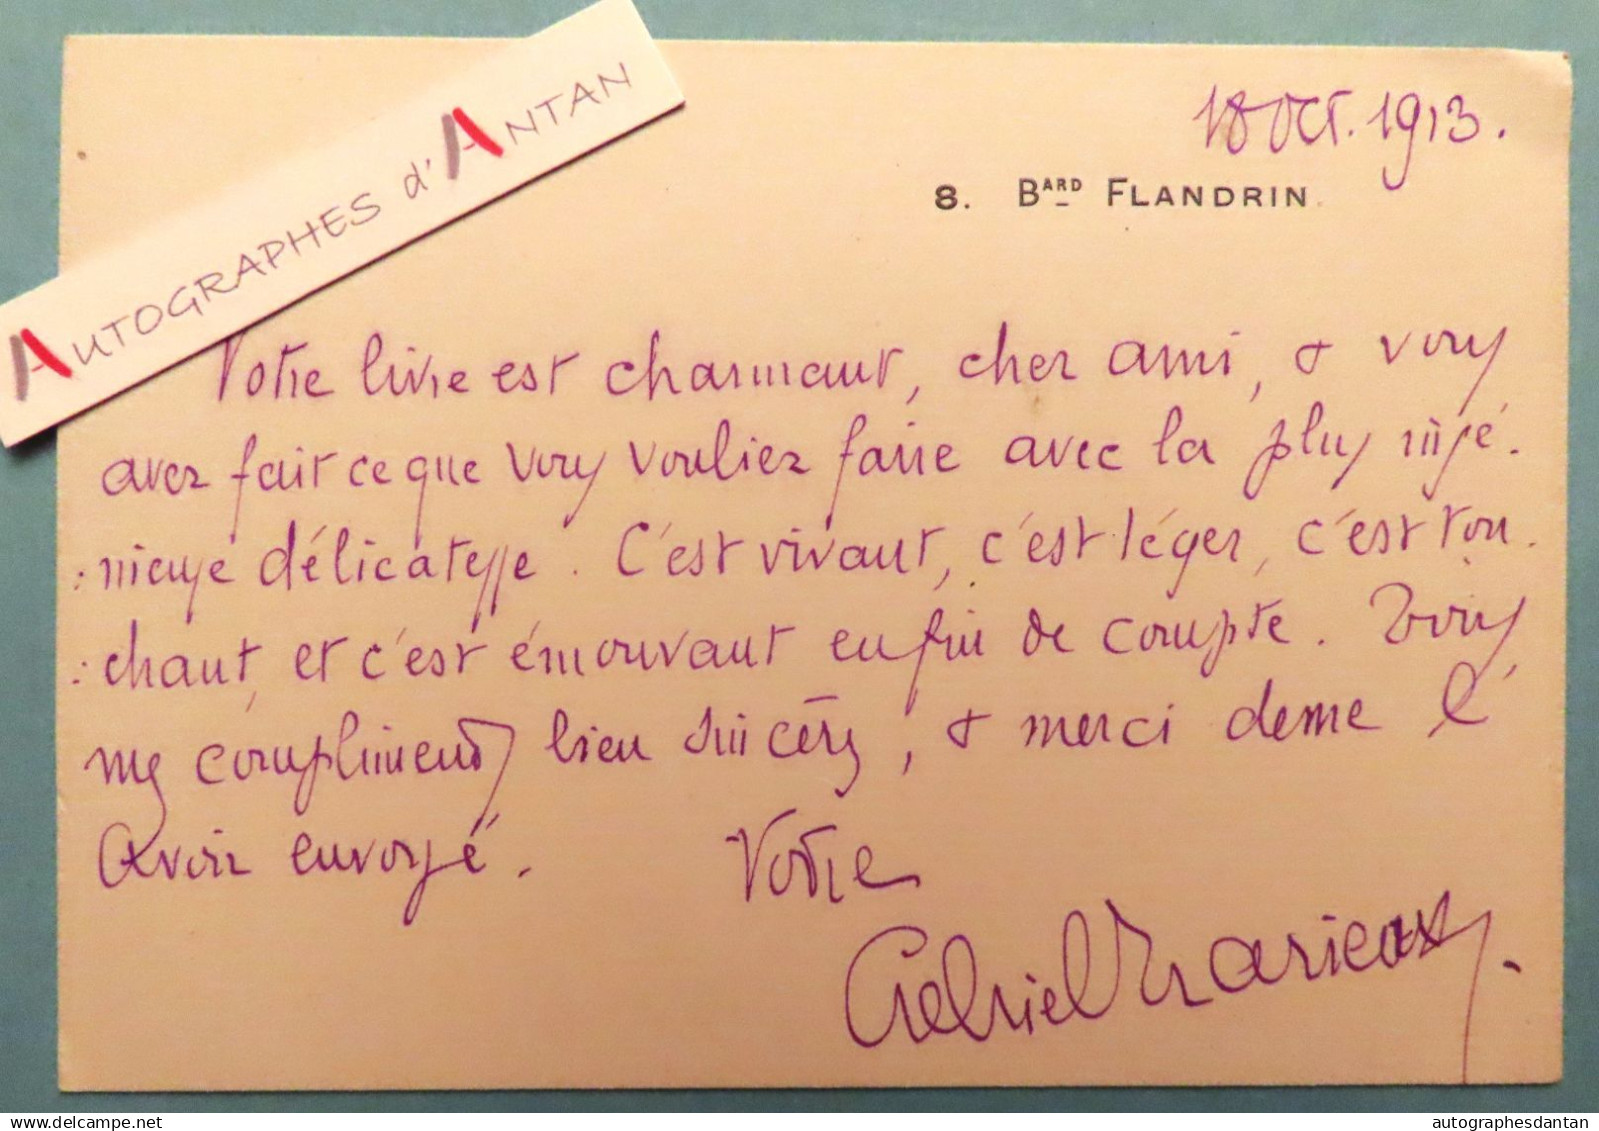 AUTOGRAPHES d'ANTAN
18 OCT. 1913.
8. BARD FLANDRIN.
Votre livre est charmant, cher ami, & vous
avez fait ce que vous vouliez faire avec la plus ingé-
:nieuse délicatesse. C'est vivant, c'est léger, c'est tou-
:chant, et c'est émouvant en fin de compte. Tous
mes compliments bien sincères, & merci de me l'
avoir envoyé. Votre
Gabriel
autographesdantan